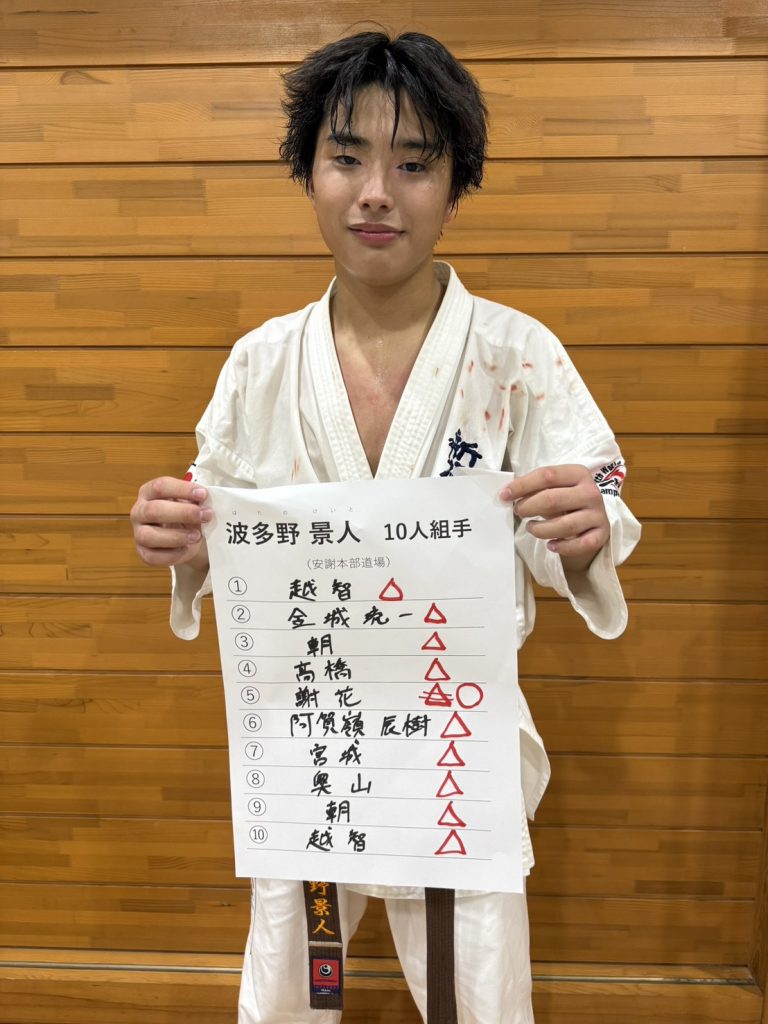 はたの けいと
波多野 景人 10人組手
（安謝本部道場）
① 越智 △
② 金城琉一 △
③ 朝 △
④ 高橋 △
⑤ 謝花 △ ○
⑥ 阿賀嶺 辰樹 △
⑦ 宮城 △
⑧ 奥山 △
⑨ 朝 △
⑩ 越智 △
野景人